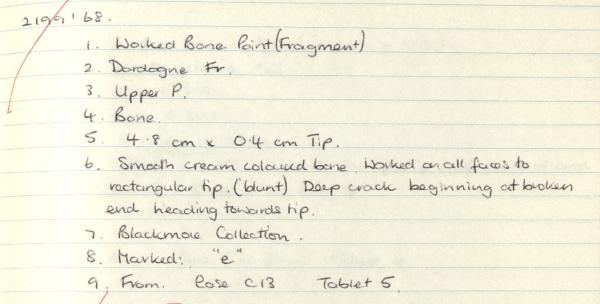 2199'68.
1. Worked Bone Point (Fragment)
2. Dordogne Fr.
3. Upper P.
4. Bone.
5. 4.8 cm x 0.4 cm Tip.
6. Smooth cream coloured bone. Worked on all faces to
rectangular tip. (blunt) Deep crack beginning at broken
end heading towards tip.
7. Blackmore Collection.
8. Marked: "e"
9. From. Case C13 Tablet 5.